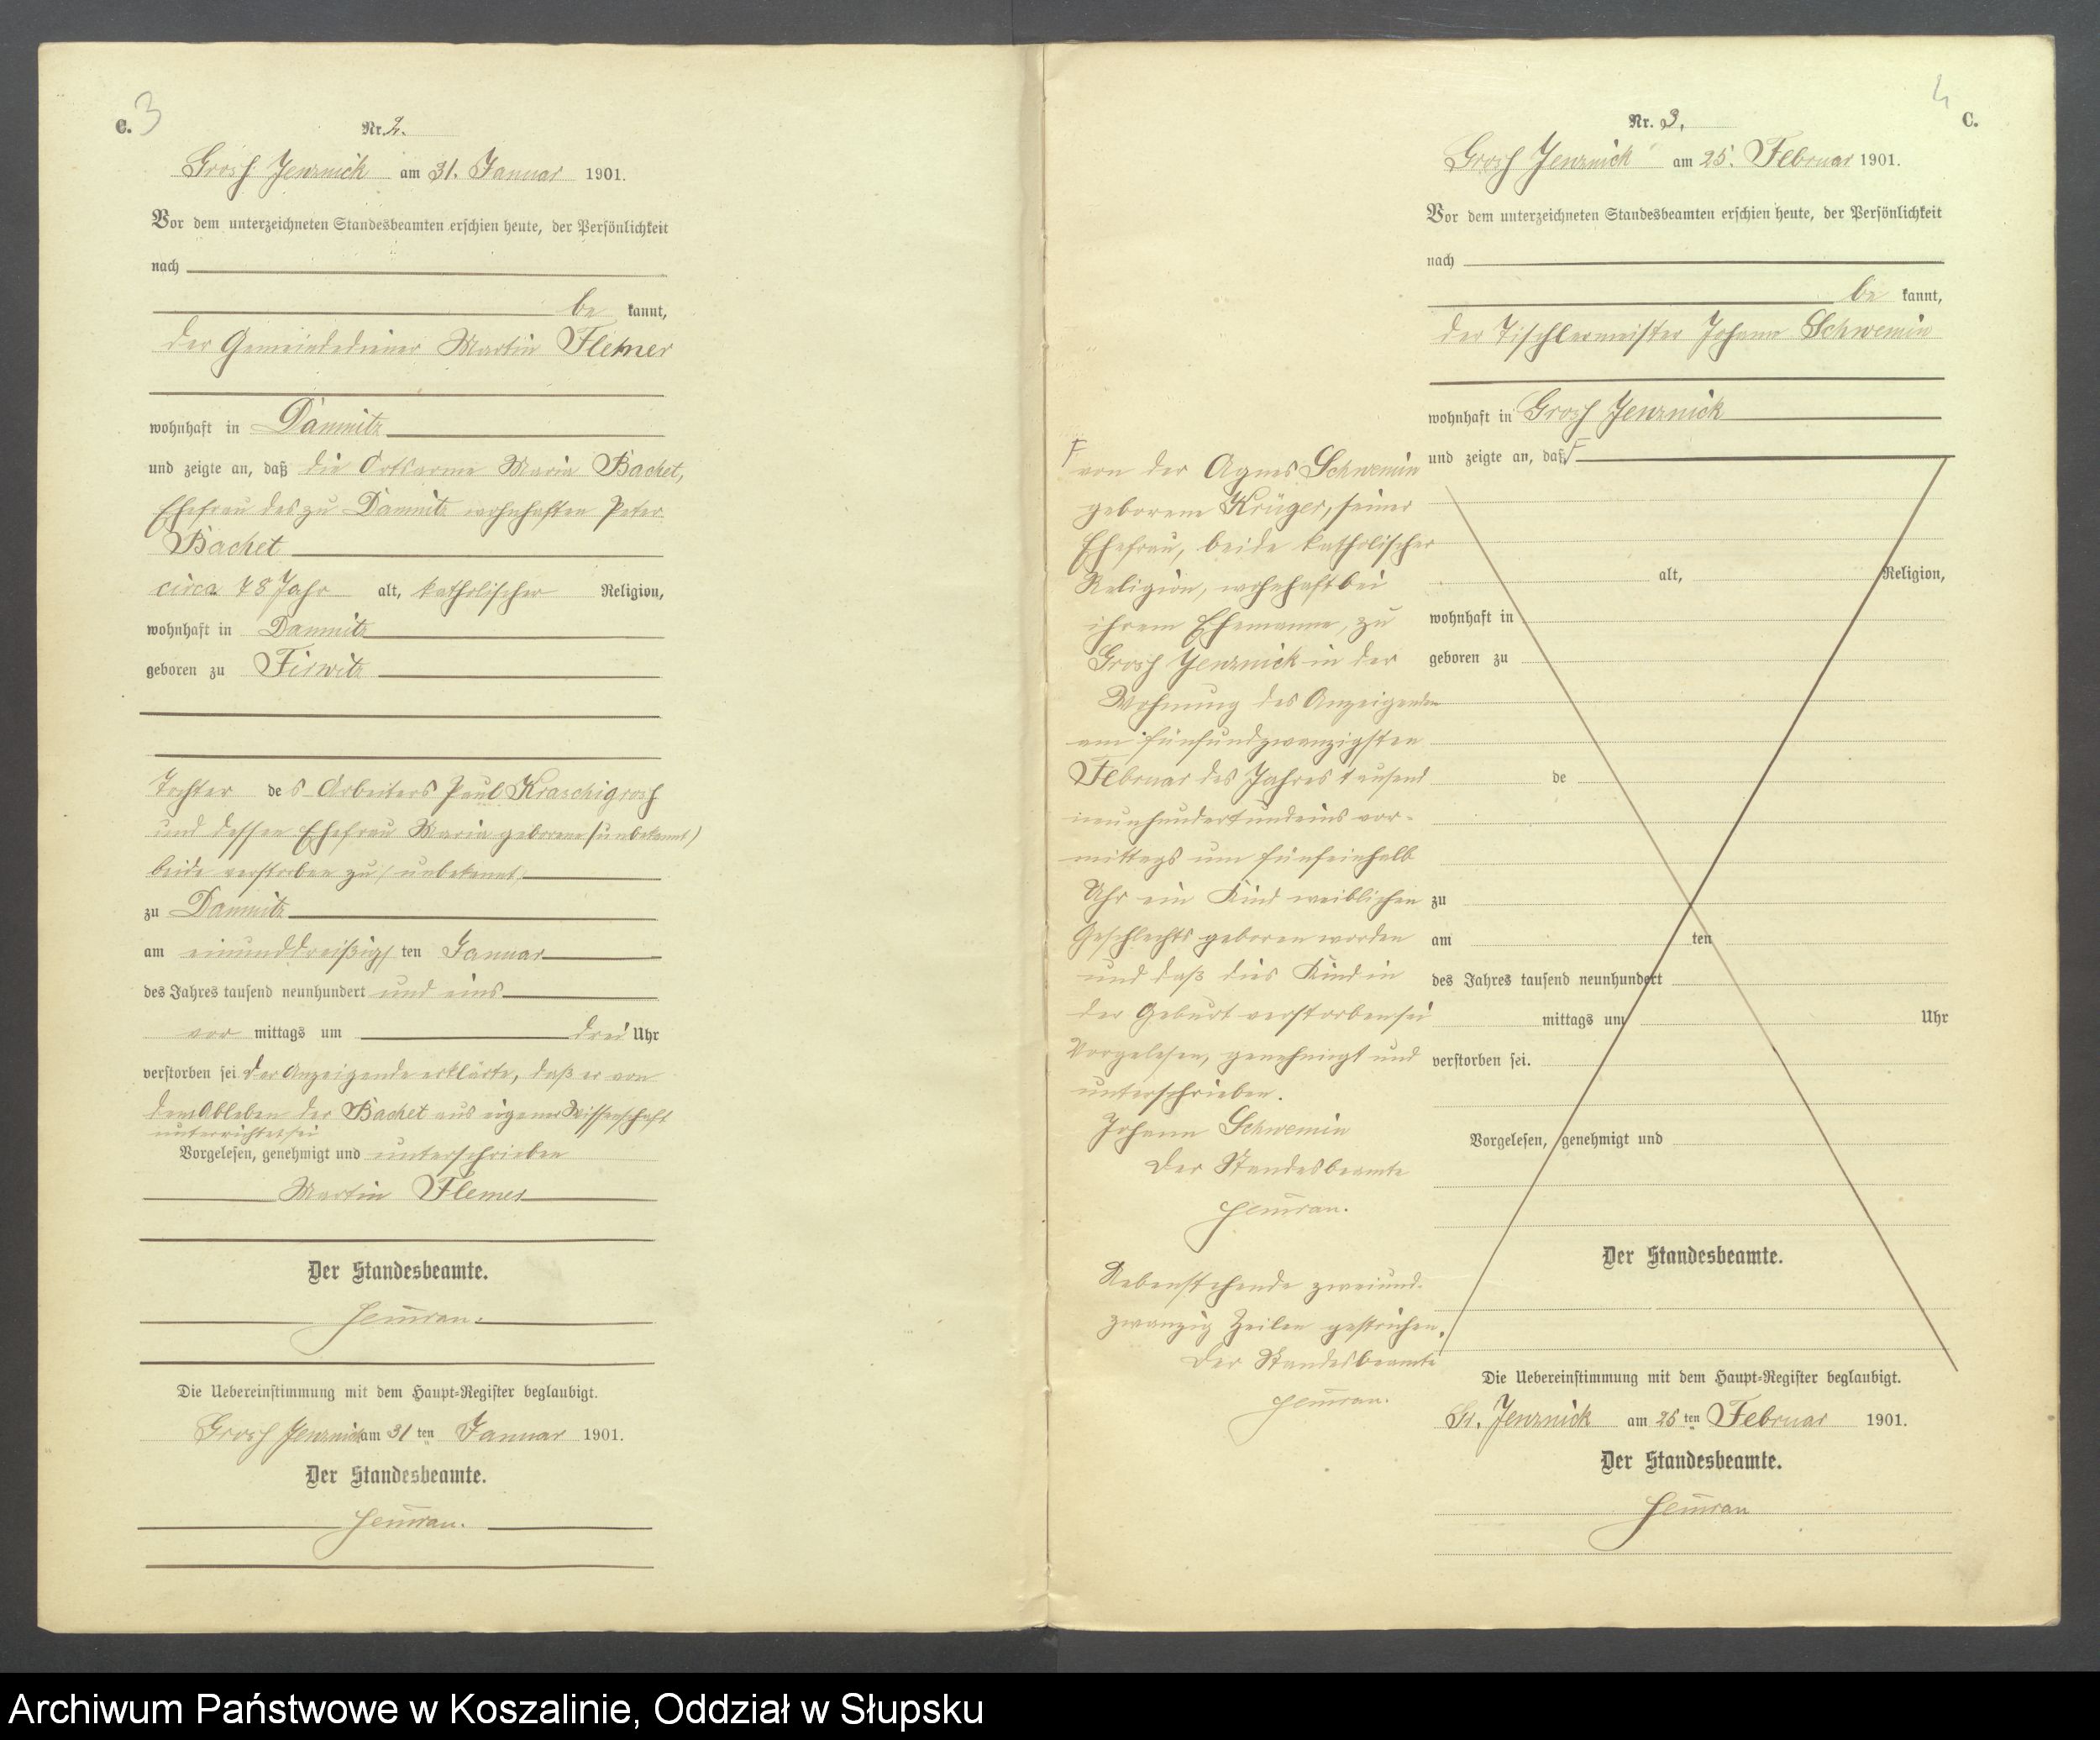 C. 3
Nr. 2.
Grosz Jenznick am 31. Januar 1901.
Vor dem unterzeichneten Standesbeamten erschien heute, der Persönlichkeit
nach
be kannt,
der Gemeindediener Martin Flemer
wohnhaft in Damnitz
und zeigte an, daß die Ortsarme Maria Bachet,
Ehefrau des zu Damnitz wohnhaften Peter
Bachet
circa 78 Jahr alt, katholischer Religion,
wohnhaft in Damnitz
geboren zu
Tochter des Arbeiters Paul Kraschigrosz
und dessen Ehefrau Maria geborene (unbekannt)
beide verstorben zu (unbekannt)
zu Damnitz
am einunddreißigs ten Januar
des Jahres tausend neunhundert und eins
vor mittags um drei Uhr
verstorben sei der Anzeigende erklärte, daß er von
dem Ableben der Bachet aus eigener Wissenschaft
unterrichtet sei
Vorgelesen, genehmigt und unterschrieben
Martin Flemer
Der Standesbeamte.
Die Uebereinstimmung mit dem Haupt-Register beglaubigt.
Grosz Jenznick am 31 ten Januar 1901.
Der Standesbeamte.
4
Nr. 3. C.
Grosz Jenznick am 25. Februar 1901.
Vor dem unterzeichneten Standesbeamten erschien heute, der Persönlichkeit
nach
be kannt,
der Tischlermeister Johann Schwemin
wohnhaft in Grosz Jenznick
und zeigte an, daß
von der Agnes Schwemin
geborene Krüger, seiner
Ehefrau, beide katholischer
Religion, wohnhaft bei
ihrem Ehemanne, zu
Grosz Jenznick in der
Wohnung des Anzeigenden
am fünfundzwanzigsten
Februar des Jahres tausend
neunhundertundeins vor-
mittags um fünfeinhalb
Uhr ein Kind weiblichen
Geschlechts geboren worden
und daß dies Kind in
der Geburt verstorben sei
Vorgelesen, genehmigt und
unterschrieben.
Johann Schwemin
Der Standesbeamte
Nebenstehende zweiund-
zwanzig Zeilen gestrichen.
Der Standesbeamte
alt, Religion,
wohnhaft in
geboren zu
de
zu
am ten
des Jahres tausend neunhundert
mittags um Uhr
verstorben sei.
Vorgelesen, genehmigt und
Der Standesbeamte.
Die Uebereinstimmung mit dem Haupt-Register beglaubigt.
Gr. Jenznick am 25 ten Februar 1901.
Der Standesbeamte.
Archiwum Państwowe w Koszalinie, Oddział w Słupsku